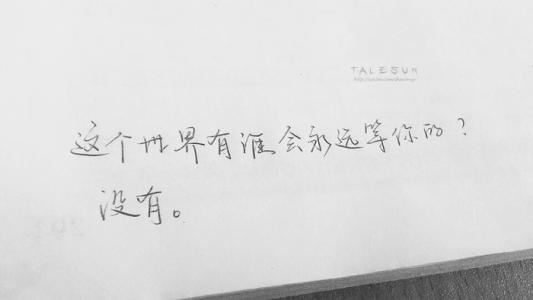 TALESUN
这个世界有谁会永远等你的？
没有。